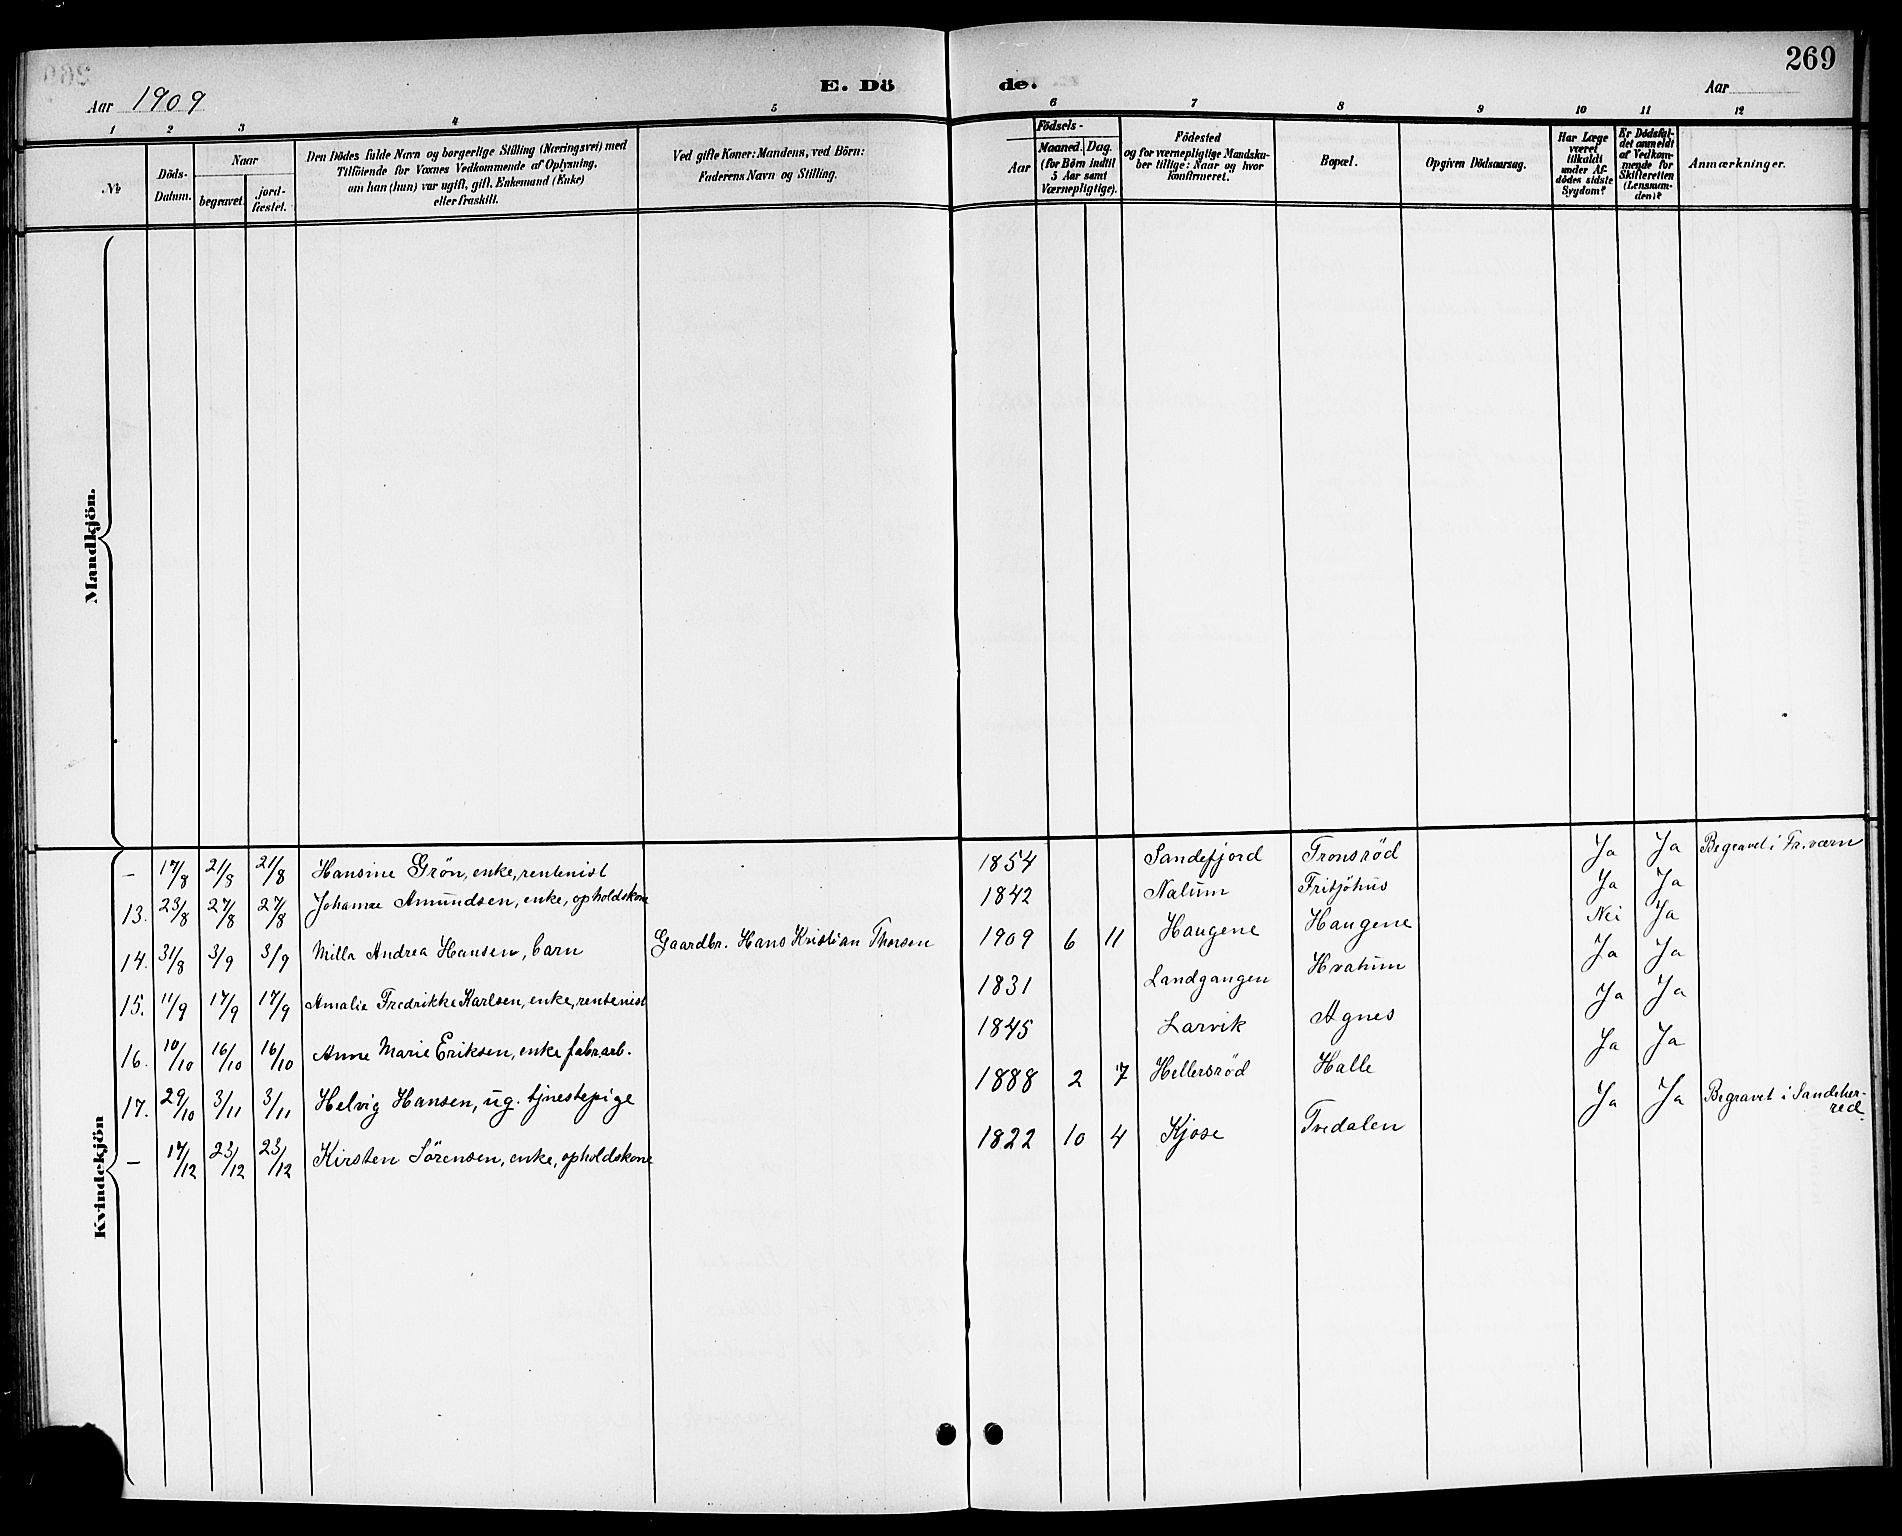 269
Aar 1909
E. Dö de.
Aar
1 2 3 4 5 6 7 8 9 10 11 12
№
Döds-
Datum.
Naar
begravet.
jord-
fæstet.
Den Dödes fulde Navn og borgerlige Stilling (Næringsvei) med
Tilföiende for Voxnes Vedkommende af Oplysning,
om han (hun) var ugift, gift, Enkemand (Enke)
eller fraskilt.
Ved gifte Koner: Mandens, ved Börn:
Faderens Navn og Stilling.
Födsels-
Aar
Maaned. Dag.
(for Börn indtil
5 Aar samt
Værnepligtige).
Födested
og for værnepligtige Mandska-
ber tillige: Naar og hvor
konfirmeret.
Bopæl.
Opgiven Dödsaarsag.
Har Læge
været
tilkaldt
under Af-
dödes sidste
Sygdom?
Er Dödsfal-
det anmeldt
af Vedkom-
mende for
Skifteretten
(Lensman-
den)?
Anmærkninger.
Mandkjön.
Kvindekjön
– 17/8 21/8 21/8 Hansine Grön, enke, rentenist 1854 Sandefjord Tronsröd Ja Ja Begravet i Fr.værn
13. 23/8 27/8 27/8 Johanne Amundsen, enke, opholdskone 1842 Nalum Fritjöhus Ja Ja
14. 31/8 3/9 3/9 Milla Andrea Hansen, barn Gaardbr. Hans Kristian Thorsen 1909 6 11 Haugene Haugene Nei Ja
15. 11/9 17/9 17/9 Amalie Fredrikke Karlsen, enke, rentenist 1831 Landgangen Hvatum Ja Ja
16. 10/10 16/10 16/10 Anne Marie Eriksen, enke fabr.arb. 1845 Larvik Agnes Ja Ja
17. 29/10 3/11 3/11 Helvig Hansen, ug. tjenestepige 1888 2 7 Hellersröd Halle Ja Ja
– 17/12 23/12 23/12 Kirsten Sörensen, enke, opholdskone 1822 10 4 Kjose Tvedalen Ja Ja Begravet i Sandeher-
red.